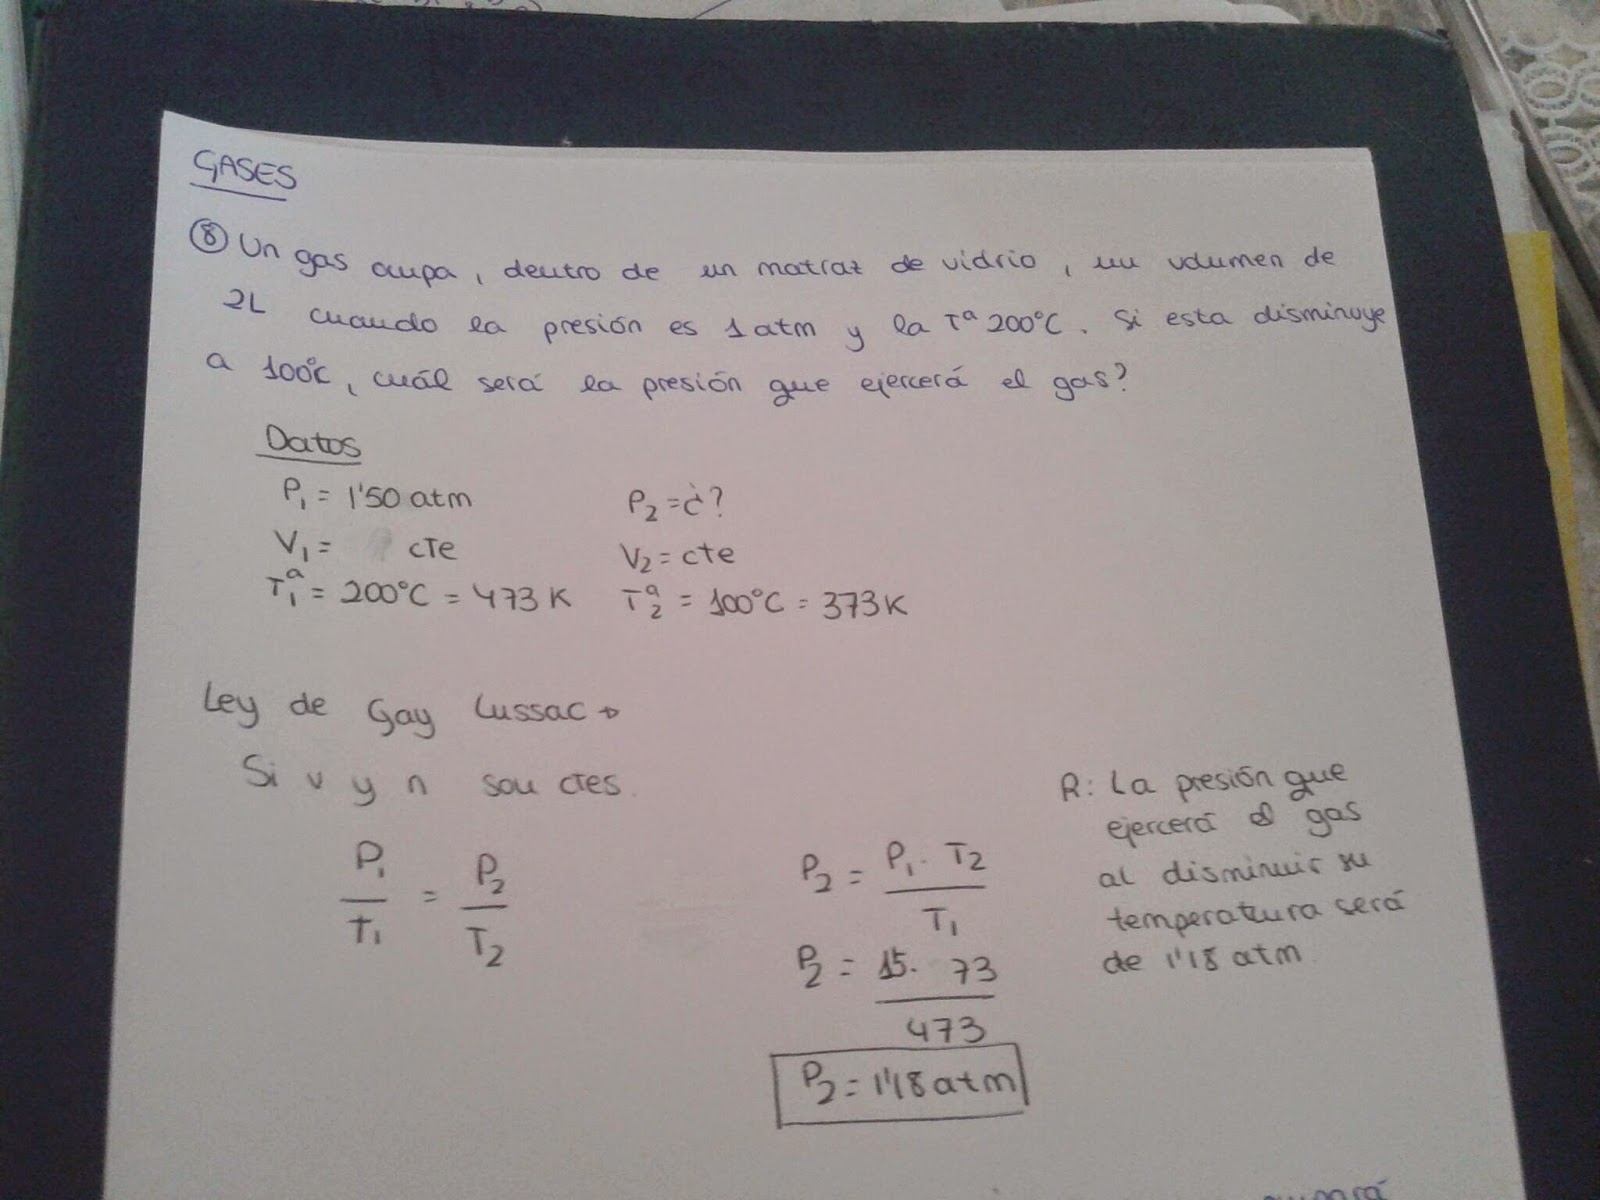 GASES
⑧ Un gas ocupa, dentro de un matraz de vidrio, un volumen de
2L cuando la presión es 1 atm y la Tª 200°C. Si esta disminuye
a 100°C, cuál será la presión que ejercerá el gas?
Datos
P₁ = 1'50 atm P₂ = ¿?
V₁ = cTe V₂ = cte
T₁ª = 200°C = 473 K T₂ª = 100°C = 373 K
Ley de Gay Lussac →
Si v y n son ctes.
P₁/T₁ = P₂/T₂
P₂ = P₁ · T₂ / T₁
P₂ = 15 · 73 / 473
P₂ = 1'18 atm
R: La presión que
ejercerá el gas
al disminuir su
temperatura será
de 1'18 atm